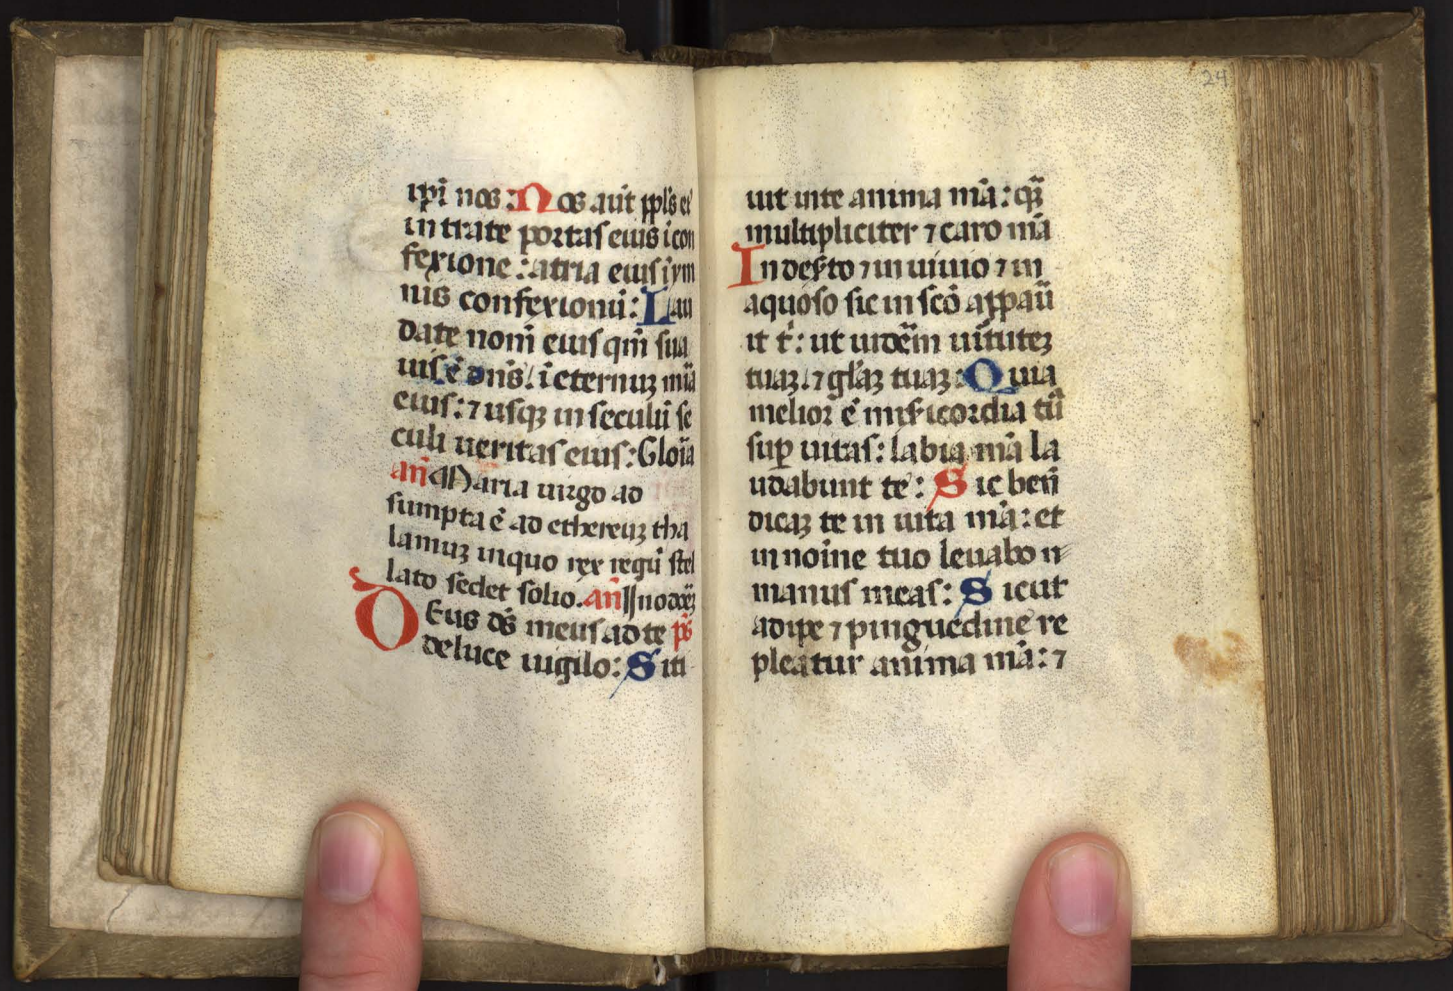 ipĩ nos: Nos aut̃ pplũs eĩ
intrate portas eius ĩ con
fexione: atria eius ĩ ym
nis confexionũ: Lau
date nom̃ eius qm̃ sua
uis ẽ dñs. ĩ eternuȝ mĩa
eius: ⁊ usqȝ in seculũ se
culi ueritas eius: Gloĩa
añ Maria uirgo ad
sumpta ẽ ad ethereuȝ tha
lamuȝ inquo rex regũ stel
lato sedet solio. añ
Deus ds̃ meus ad te ps̃
de luce uigilo: Siti
24
uit inte anima mã: qȝ̃
multipliciter ⁊ caro mã
In deẽto ⁊ in uiuio ⁊ in
aquoso sic in scõ appaũ
it t̃: ut uidẽm uĩtuteȝ
tuaȝ. ⁊ glãȝ tuaȝ: Quia
melior ẽ mĩsicordia tũ
sup̃ uitas: labia mã la
udabunt te: Sic beñ
dicaȝ te in uita mã: et
in noĩne tuo leuabo
manus meas: Sicut
adipe ⁊ pinguedine re
pleatur anima mã: ⁊